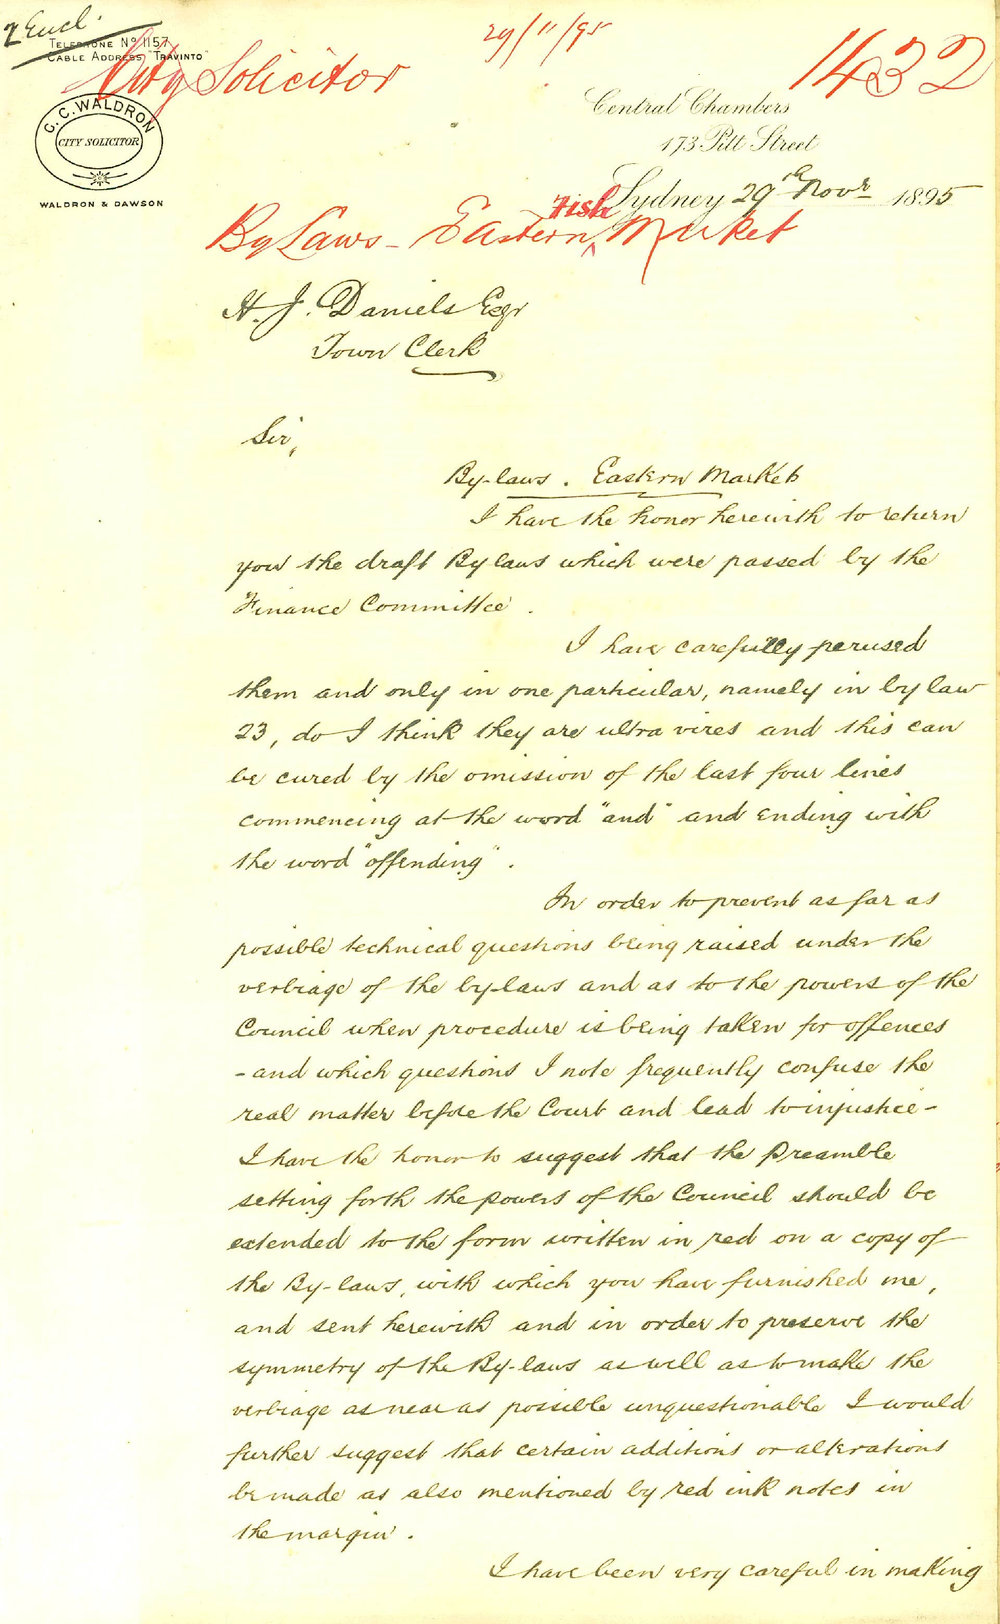 2 Encl.
TELEPHONE Nº 1157
CABLE ADDRESS "TRAVINTO"
City Solicitor
29/11/95
1432
C. C. WALDRON
CITY SOLICITOR
WALDRON & DAWSON
Central Chambers
173 Pitt Street
Sydney 29th Novr 1895
Fish
By Laws - Eastern ^ Market
H. J. Daniels Esqr
Town Clerk
Sir,
By-laws. Eastern Market
I have the honor herewith to return
you the draft By laws which were passed by the
Finance Committee.
I have carefully perused
them and only in one particular, namely in by law
23, do I think they are ultra vires and this can
be cured by the omission of the last four lines
commencing at the word "and" and ending with
the word "offending".
In order to prevent as far as
possible technical questions being raised under the
verbiage of the by-laws and as to the powers of the
Council when procedure is being taken for offences
- and which questions I note frequently confuse the
real matter before the Court and lead to injustice -
I have the honor to suggest that the Preamble
setting forth the powers of the Council should be
extended to the form written in red on a copy of
the By-laws, with which you have furnished me,
and sent herewith and in order to preserve the
symmetry of the By-laws as well as to make the
verbiage as near as possible unquestionable I would
further suggest that certain additions or alterations
be made as also mentioned by red ink notes in
the margin.
I have been very careful in making